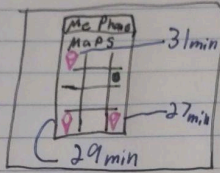 Me Phone
Maps
31min
27min
29min